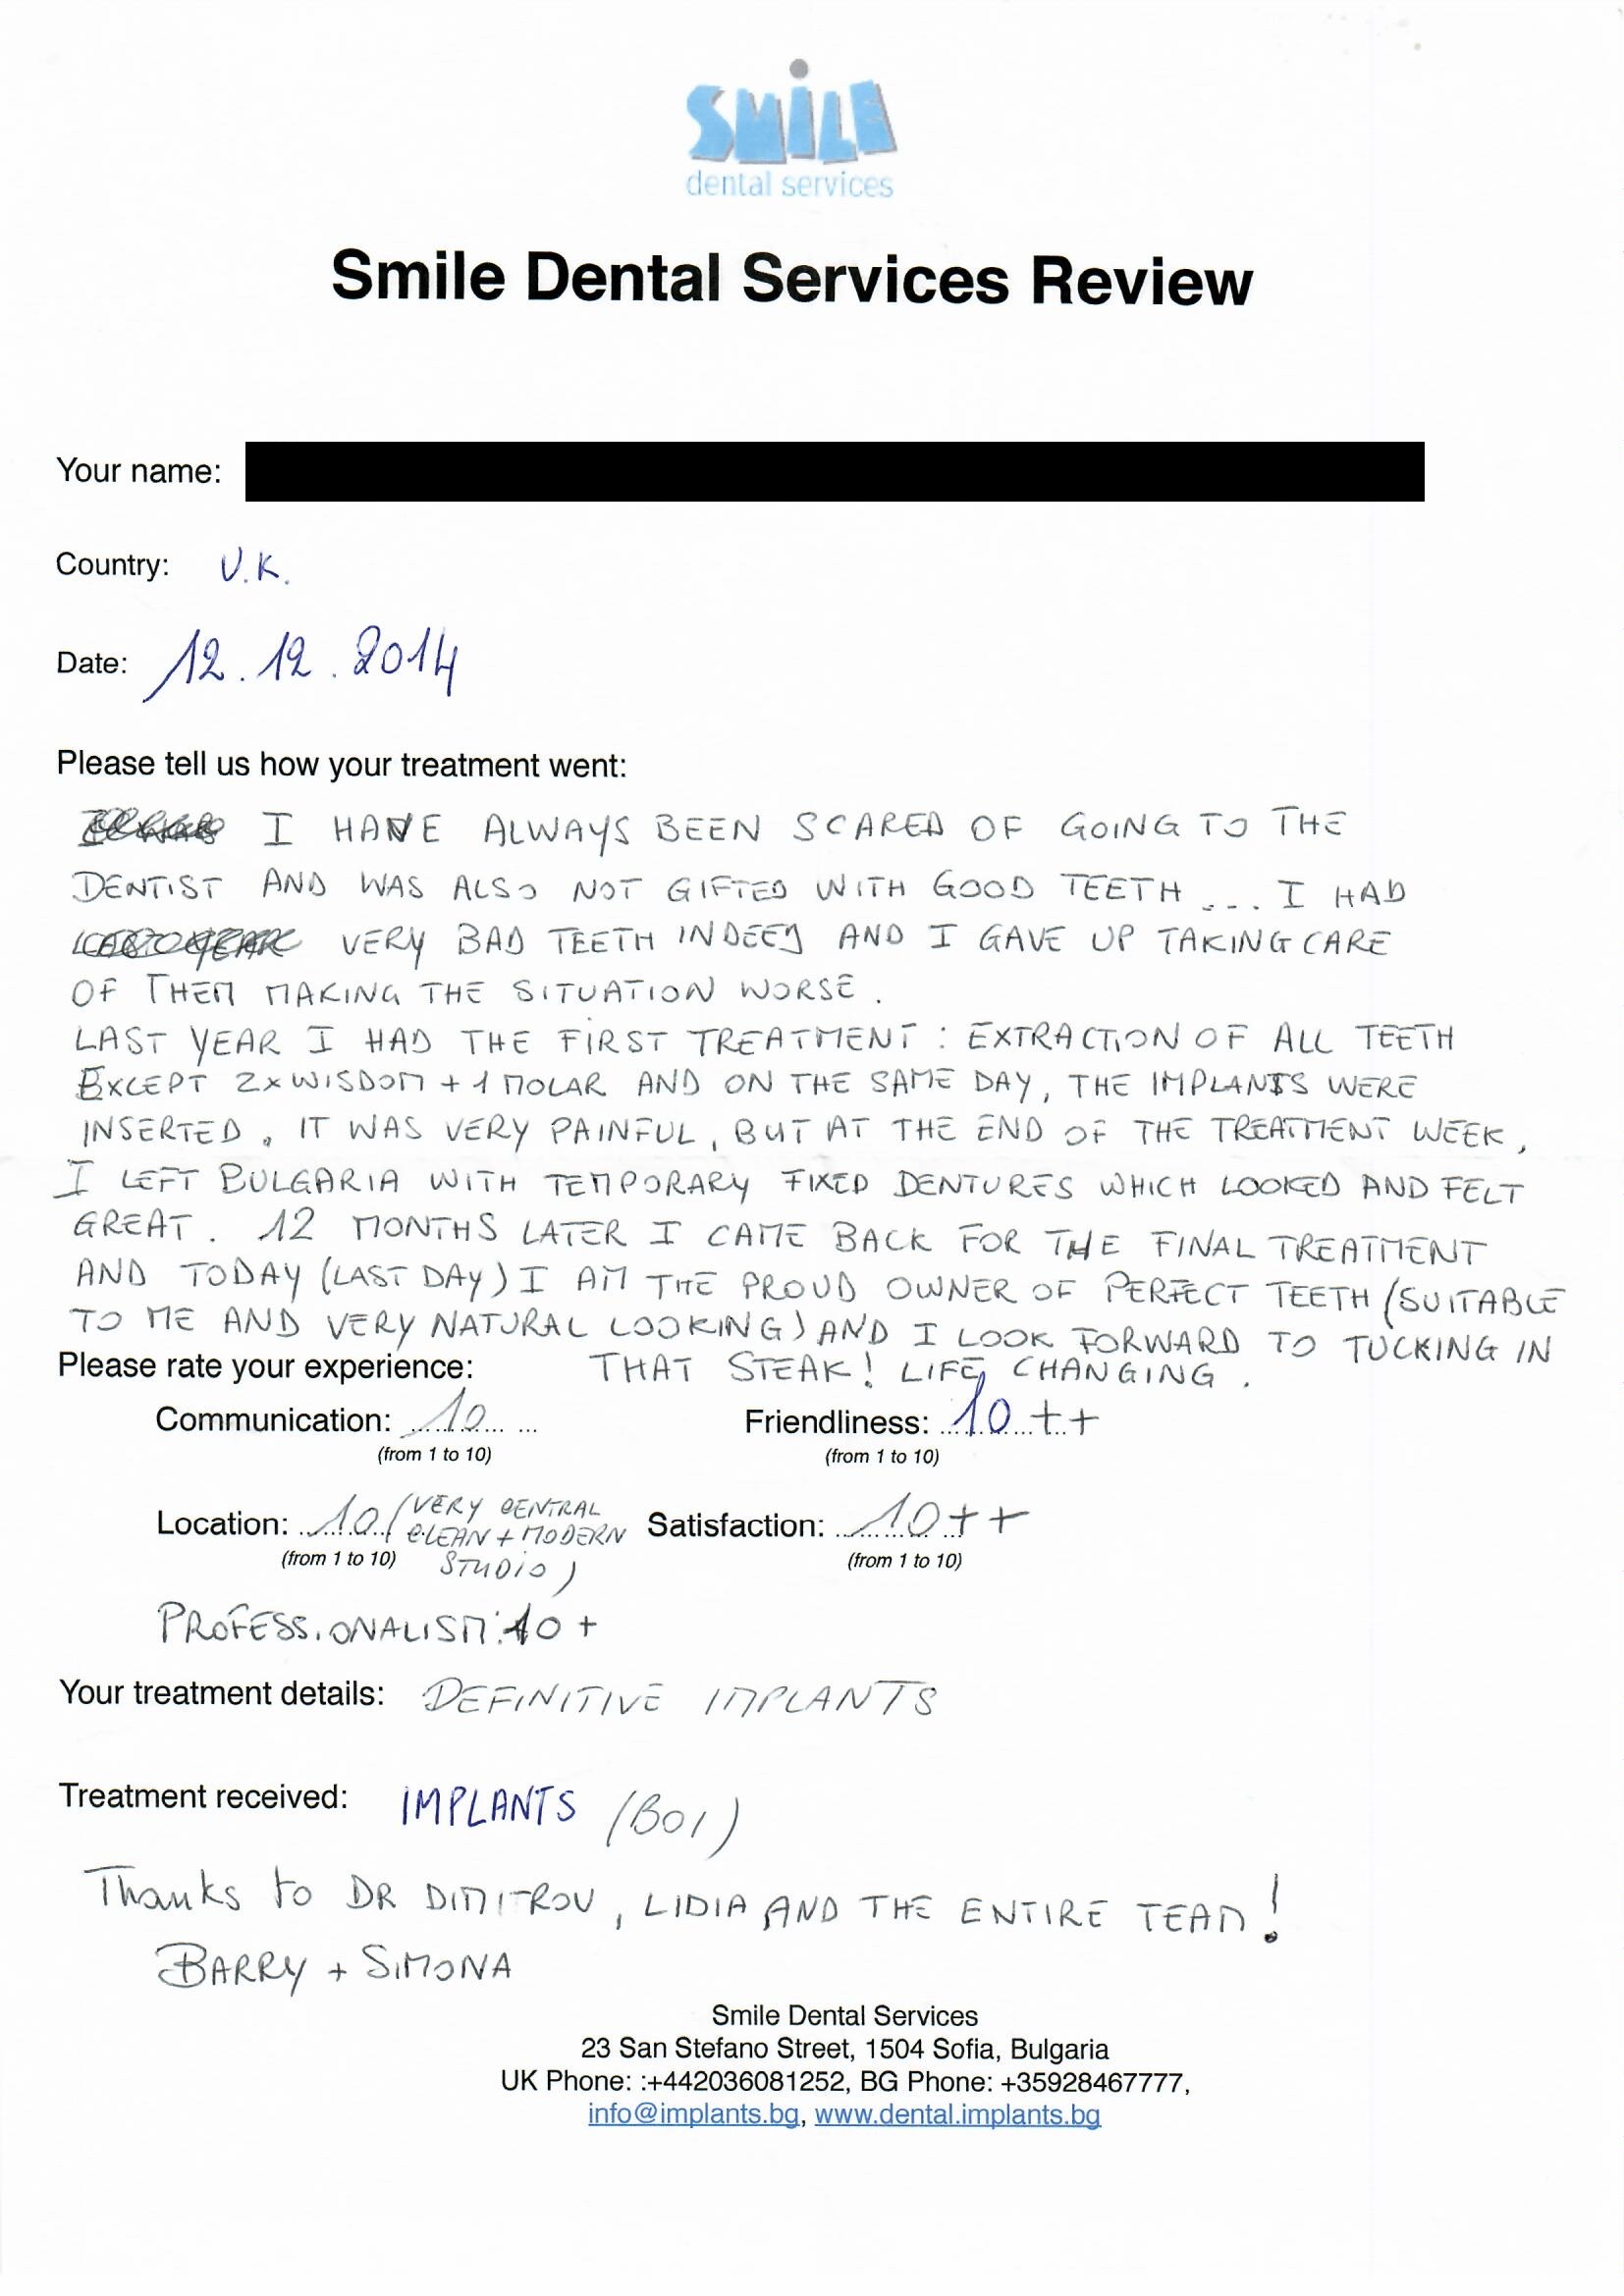 SMiLE
dental services
Smile Dental Services Review
Your name:
Country: U.K.
Date: 12.12.2014
Please tell us how your treatment went:
I HAVE ALWAYS BEEN SCARED OF GOING TO THE
DENTIST AND WAS ALSO NOT GIFTED WITH GOOD TEETH .... I HAD
VERY BAD TEETH INDEED AND I GAVE UP TAKING CARE
OF THEM MAKING THE SITUATION WORSE.
LAST YEAR I HAD THE FIRST TREATMENT: EXTRACTION OF ALL TEETH
EXCEPT 2x WISDOM + 1 MOLAR AND ON THE SAME DAY, THE IMPLANTS WERE
INSERTED. IT WAS VERY PAINFUL, BUT AT THE END OF THE TREATMENT WEEK,
I LEFT BULGARIA WITH TEMPORARY FIXED DENTURES WHICH LOOKED AND FELT
GREAT. 12 MONTHS LATER I CAME BACK FOR THE FINAL TREATMENT
AND TODAY (LAST DAY) I AM THE PROUD OWNER OF PERFECT TEETH (SUITABLE
TO ME AND VERY NATURAL LOOKING) AND I LOOK FORWARD TO TUCKING IN
Please rate your experience: THAT STEAK! LIFE CHANGING.
Communication: 10 Friendliness: 10++
(from 1 to 10) (from 1 to 10)
Location: 10 (VERY CENTRAL
CLEAN + MODERN Satisfaction: 10++
(from 1 to 10) STUDIO) (from 1 to 10)
PROFESSIONALISM: 10+
Your treatment details: DEFINITIVE IMPLANTS
Treatment received: IMPLANTS (BOI)
Thanks to DR DIMITROV, LIDIA AND THE ENTIRE TEAM!
BARRY + SIMONA
Smile Dental Services
23 San Stefano Street, 1504 Sofia, Bulgaria
UK Phone: :+442036081252, BG Phone: +35928467777,
info@implants.bg, www.dental.implants.bg